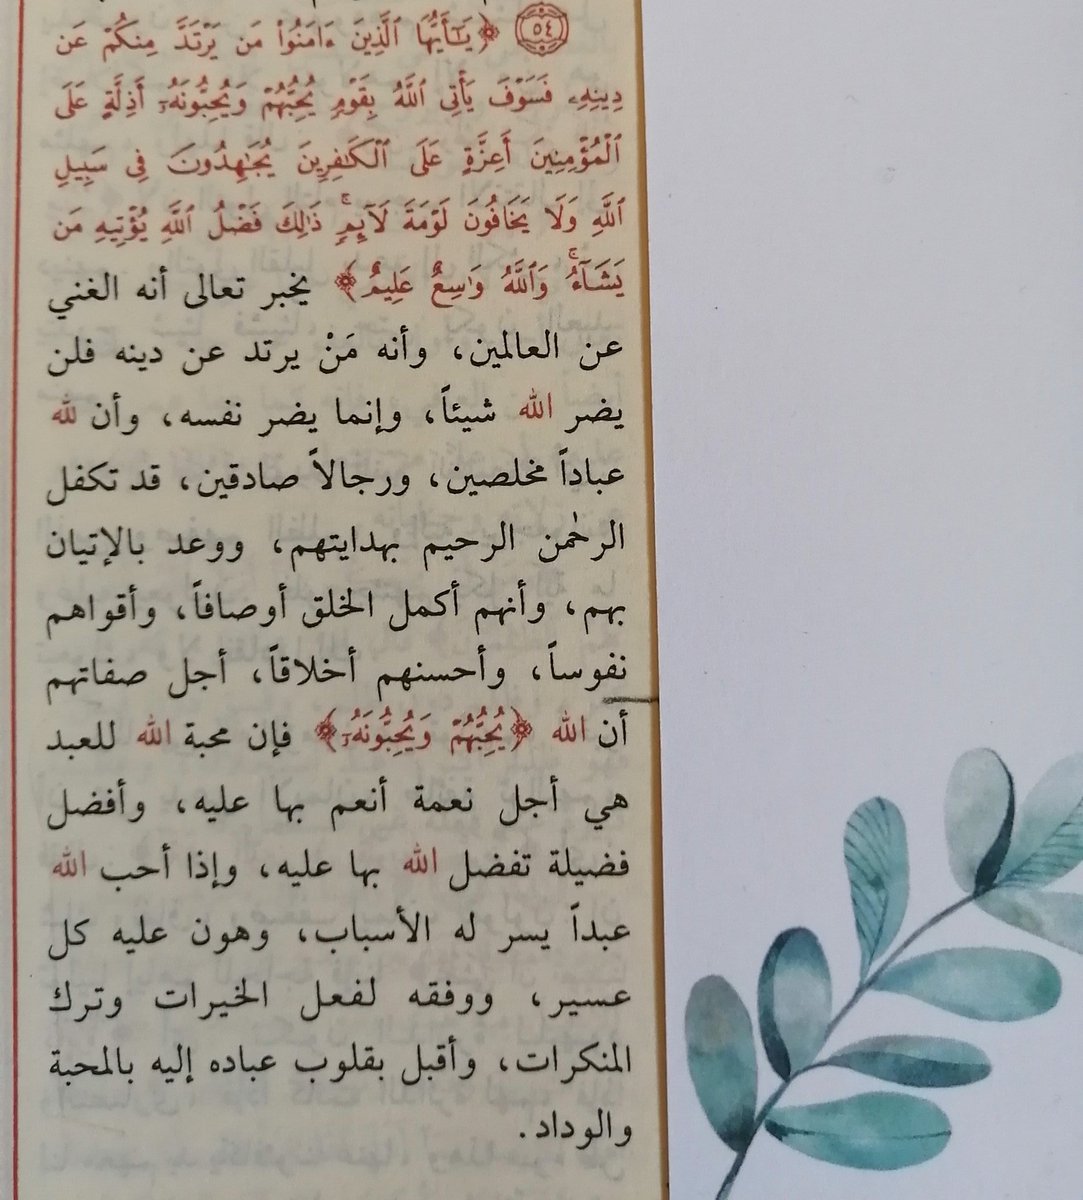 ٥٤ ﴿يَـٰٓأَيُّهَا ٱلَّذِينَ ءَامَنُوا۟ مَن يَرْتَدَّ مِنكُمْ عَن
دِينِهِۦ فَسَوْفَ يَأْتِى ٱللَّهُ بِقَوْمٍ يُحِبُّهُمْ وَيُحِبُّونَهُۥٓ أَذِلَّةٍ عَلَى
ٱلْمُؤْمِنِينَ أَعِزَّةٍ عَلَى ٱلْكَـٰفِرِينَ يُجَـٰهِدُونَ فِى سَبِيلِ
ٱللَّهِ وَلَا يَخَافُونَ لَوْمَةَ لَآئِمٍ ۚ ذَٰلِكَ فَضْلُ ٱللَّهِ يُؤْتِيهِ مَن
يَشَآءُ ۚ وَٱللَّهُ وَٰسِعٌ عَلِيمٌ﴾ يخبر تعالى أنه الغني
عن العالمين، وأنه مَنْ يرتد عن دينه فلن
يضر الله شيئاً، وإنما يضر نفسه، وأن لله
عباداً مخلصين، ورجالاً صادقين، قد تكفل
الرحمٰن الرحيم بهدايتهم، ووعد بالإتيان
بهم، وأنهم أكمل الخلق أوصافاً، وأقواهم
نفوساً، وأحسنهم أخلاقاً، أجل صفاتهم
أن الله ﴿يُحِبُّهُمْ وَيُحِبُّونَهُۥٓ﴾ فإن محبة الله للعبد
هي أجل نعمة أنعم بها عليه، وأفضل
فضيلة تفضل الله بها عليه، وإذا أحب الله
عبداً يسر له الأسباب، وهون عليه كل
عسير، ووفقه لفعل الخيرات وترك
المنكرات، وأقبل بقلوب عباده إليه بالمحبة
والوداد.